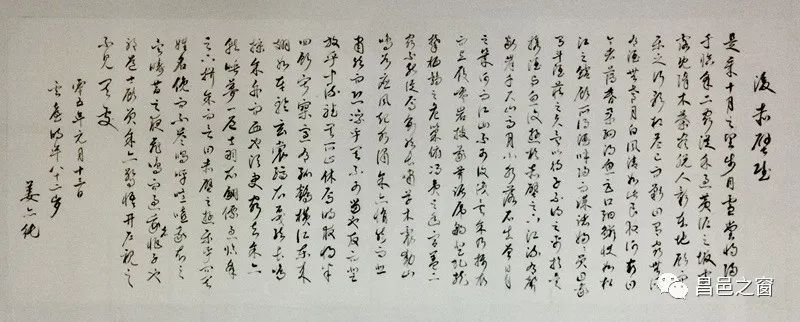 後赤壁賦
是歲十月之望步自雪堂將歸
于臨皋二客從予過黃泥之坂霜
露既降木葉盡脫人影在地顧而
樂之行歌相答已而歎曰有客無酒
有酒無肴月白風清如此良夜何客曰
今者薄暮舉網得魚巨口細鱗狀如松
江之鱸顧安所得酒乎歸而謀諸婦婦曰我
有斗酒藏之久矣以待子不時之需於是
攜酒與魚復遊於赤壁之下江流有聲
斷岸千尺山高月小水落石出曾日月
之幾何而江山不可復識矣予乃攝衣
而上履巉岩披蒙茸踞虎豹登虬龍
攀棲鶻之危巢俯馮夷之幽宮蓋二
客不能從焉劃然長嘯草木震動山
鳴谷應風起水湧予亦悄然而悲
肅然而恐凜乎其不可留也反而登
舟放乎中流聽其所止而休焉時夜將半
四顧寂寥適有孤鶴橫江東來
翅如車輪玄裳縞衣戛然長鳴
掠予舟而西也須臾客去予亦
就睡夢一道士羽衣蹁躚過臨皋
之下揖予而言曰赤壁之遊樂乎問其
姓名俛而不答嗚呼噫嘻我知之
矣疇昔之夜飛鳴而過我者非子也
邪道士顧笑予亦驚悟開戶視之
不見其處
零五年元月十二日
時年八十二歲
昌邑之窗